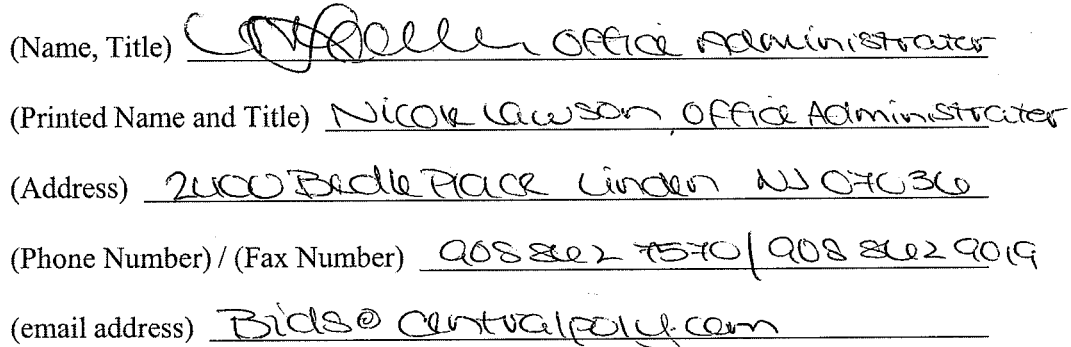 (Name, Title) Office Administrater
(Printed Name and Title) Nicole Lawson, Office Administrater
(Address) 2400 Bedle Place Linden NJ 07036
(Phone Number) / (Fax Number) 908 862 7570 / 908 862 9019
(email address) Bids@centralpoly.com